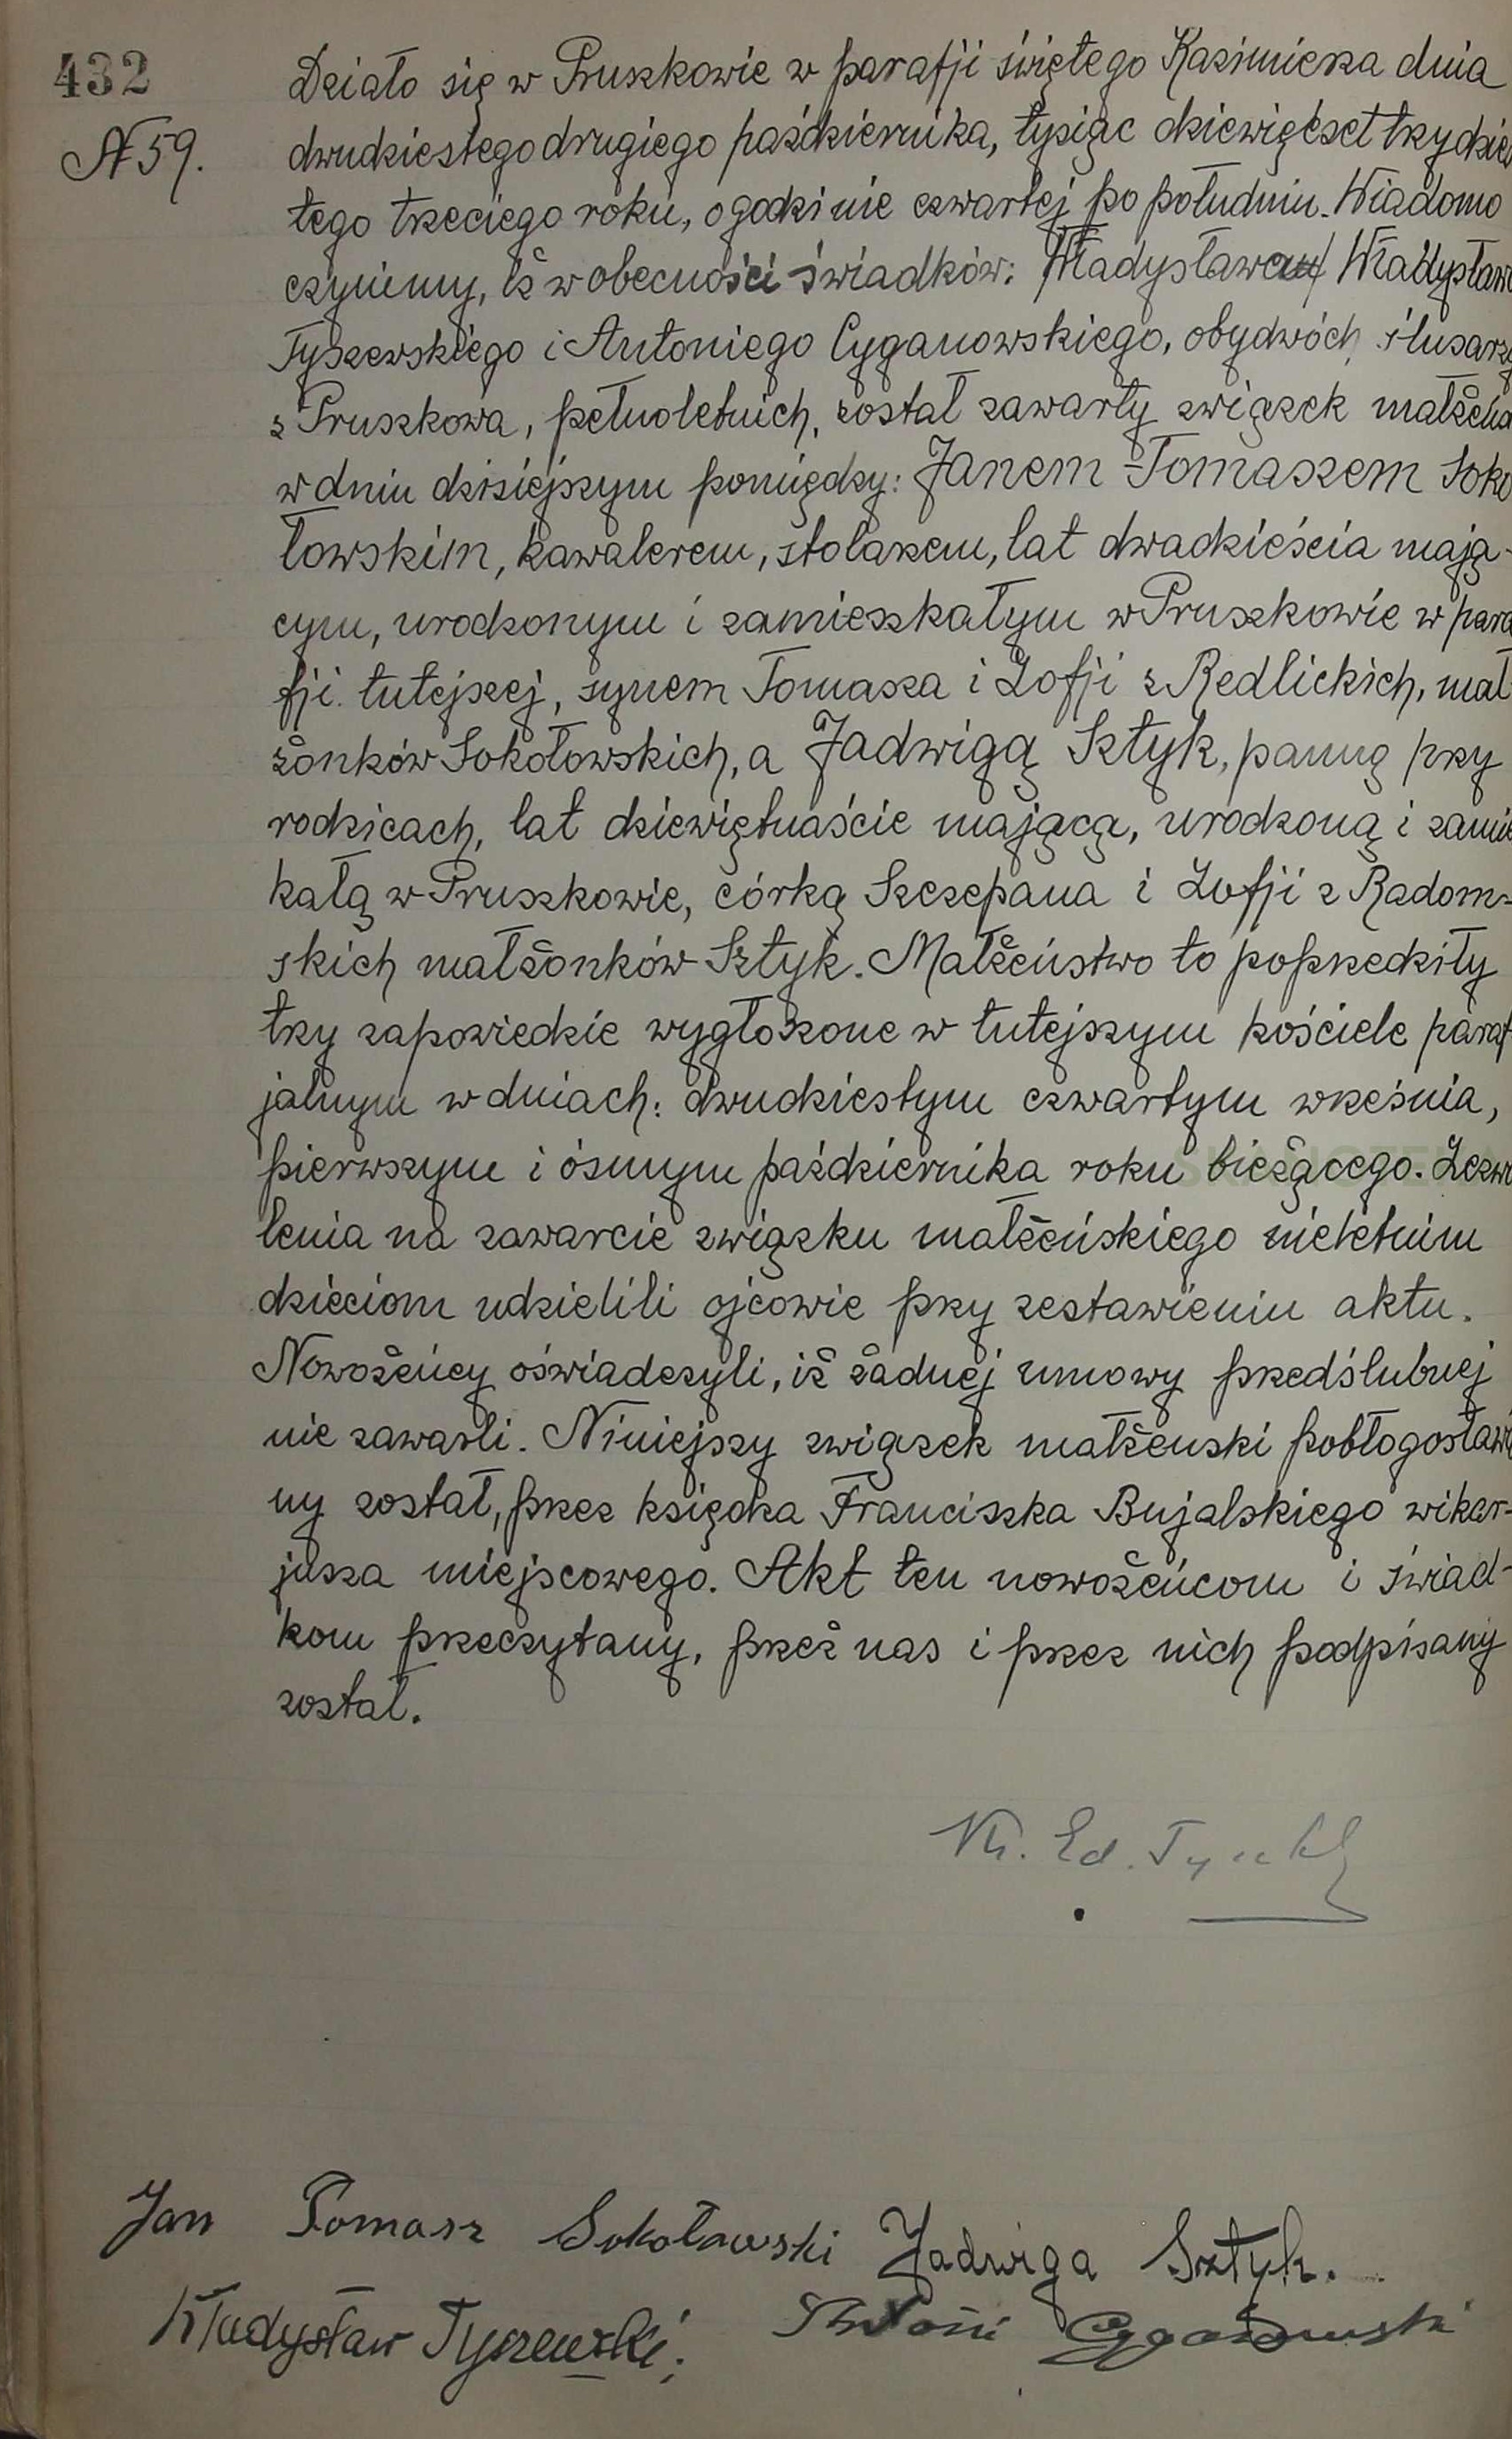 432
№ 59.
Działo się w Pruszkowie w parafji świętego Kazimierza dnia
dwudziestego drugiego października, tysiąc dziewięćset trzydzie
tego trzeciego roku, o godzinie czwartej po południu. Wiadomo
czynimy, iż w obecności świadków: Władysława Władysława
Tyszewskiego i Antoniego Cyganowskiego, obydwóch ślusarzy
z Pruszkowa, pełnoletnich, został zawarty związek małżeńs
w dniu dzisiejszym pomiędzy: Janem-Tomaszem Soko
łowskim, kawalerem, stolarzem, lat dwadzieścia mają-
cym, urodzonym i zamieszkałym w Pruszkowie w para
fji tutejszej, synem Tomasza i Zofji z Redlickich, mał-
żonków Sokołowskich, a Jadwigą Sztyk, panną przy
rodzicach, lat dziewiętnaście mającą, urodzoną i zamie
kałą w Pruszkowie, córką Szczepana i Zofji z Radom-
skich małżonków Sztyk. Małżeństwo to poprzedziły
trzy zapowiedzie wygłoszone w tutejszym kościele paraf-
jalnym w dniach: dwudziestym czwartym września,
pierwszym i ósmym października roku bieżącego. Zezwo
lenia na zawarcie związku małżeńskiego nieletnim
dzieciom udzielili ojcowie przy zestawieniu aktu.
Nowożeńcy oświadczyli, iż żadnej umowy przedślubnej
nie zawarli. Niniejszy związek małżeński pobłogosławio
ny został, przez księdza Franciszka Bujalskiego wikar-
jusza miejscowego. Akt ten nowożeńcom i świad-
kom przeczytany, przez nas i przez nich podpisany
został.
Ks. Ed. Tyszka
Jan Tomasz Sokołowski Jadwiga Sztyk.
Władysław Tyszewski; Antoni Cyganowski